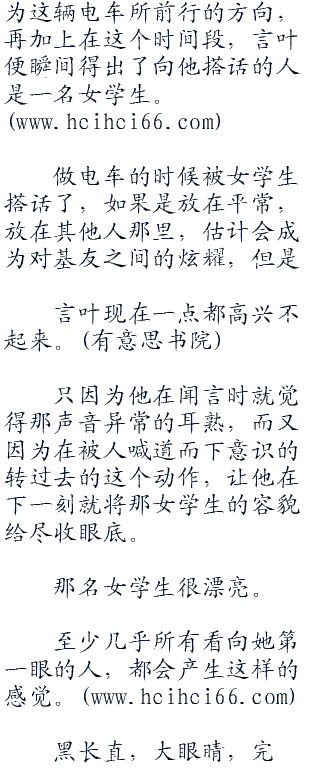 为这辆电车所前行的方向，
再加上在这个时间段，言叶
便瞬间得出了向他搭话的人
是一名女学生。
(www.hcihci66.com)
做电车的时候被女学生
搭话了，如果是放在平常，
放在其他人那里，估计会成
为对基友之间的炫耀，但是
言叶现在一点都高兴不
起来。(有意思书院)
只因为他在闻言时就觉
得那声音异常的耳熟，而又
因为在被人喊道而下意识的
转过去的这个动作，让他在
下一刻就将那女学生的容貌
给尽收眼底。
那名女学生很漂亮。
至少几乎所有看向她第
一眼的人，都会产生这样的
感觉。(www.hcihci66.com)
黑长直，大眼睛，完